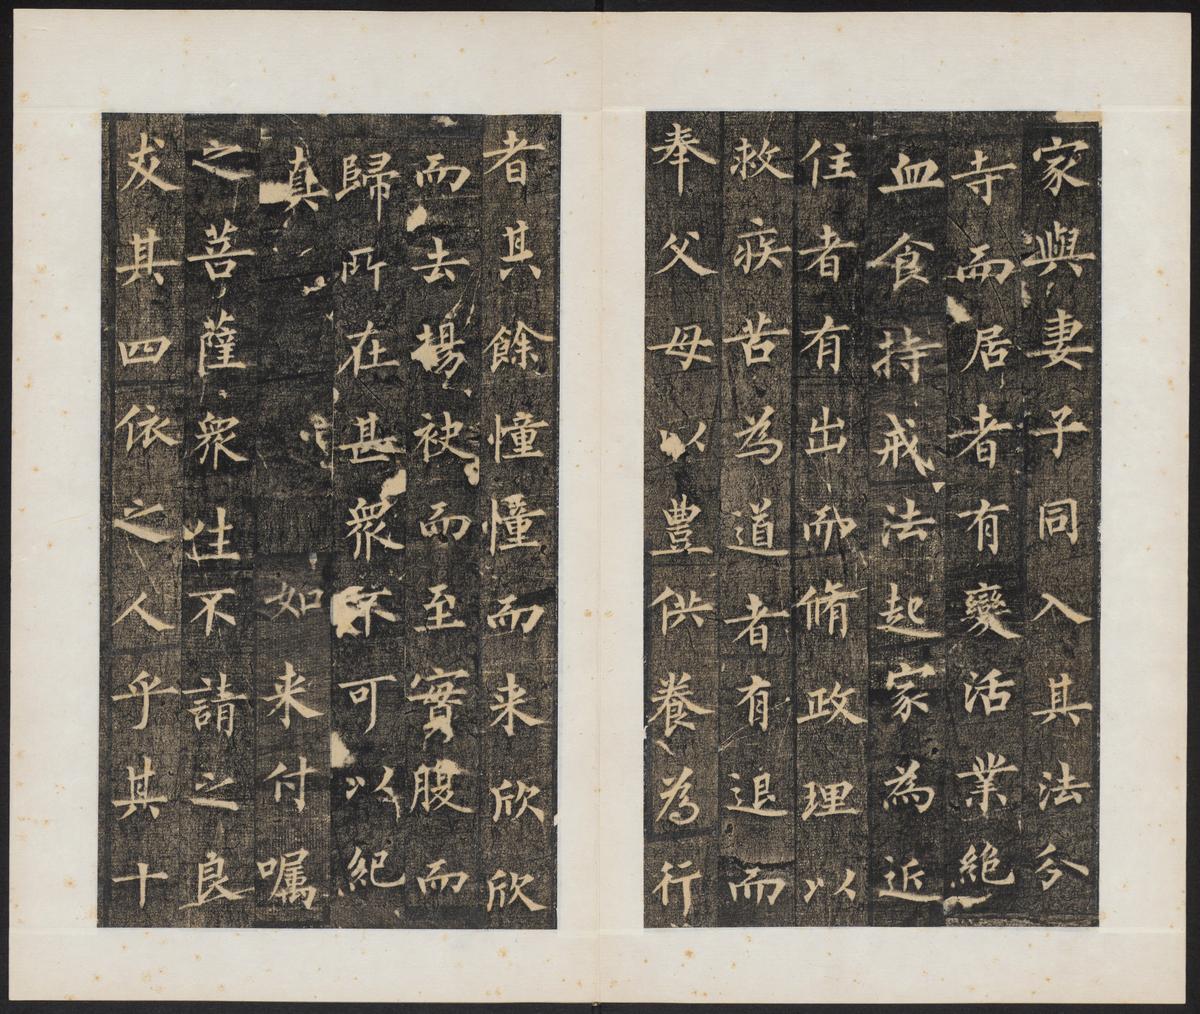 家與妻子同入其法分
寺而居者有變活業絕
血食持戒法起家為近
住者有出而脩政理以
救疾苦為道者有退而
奉父母以豐供養為行
者其餘憧憧而来欣欣
而去揚袂而至實腹而
歸所在甚眾不可以紀
真 如来付嘱
之菩薩眾生不請之良
友其四依之人乎其十